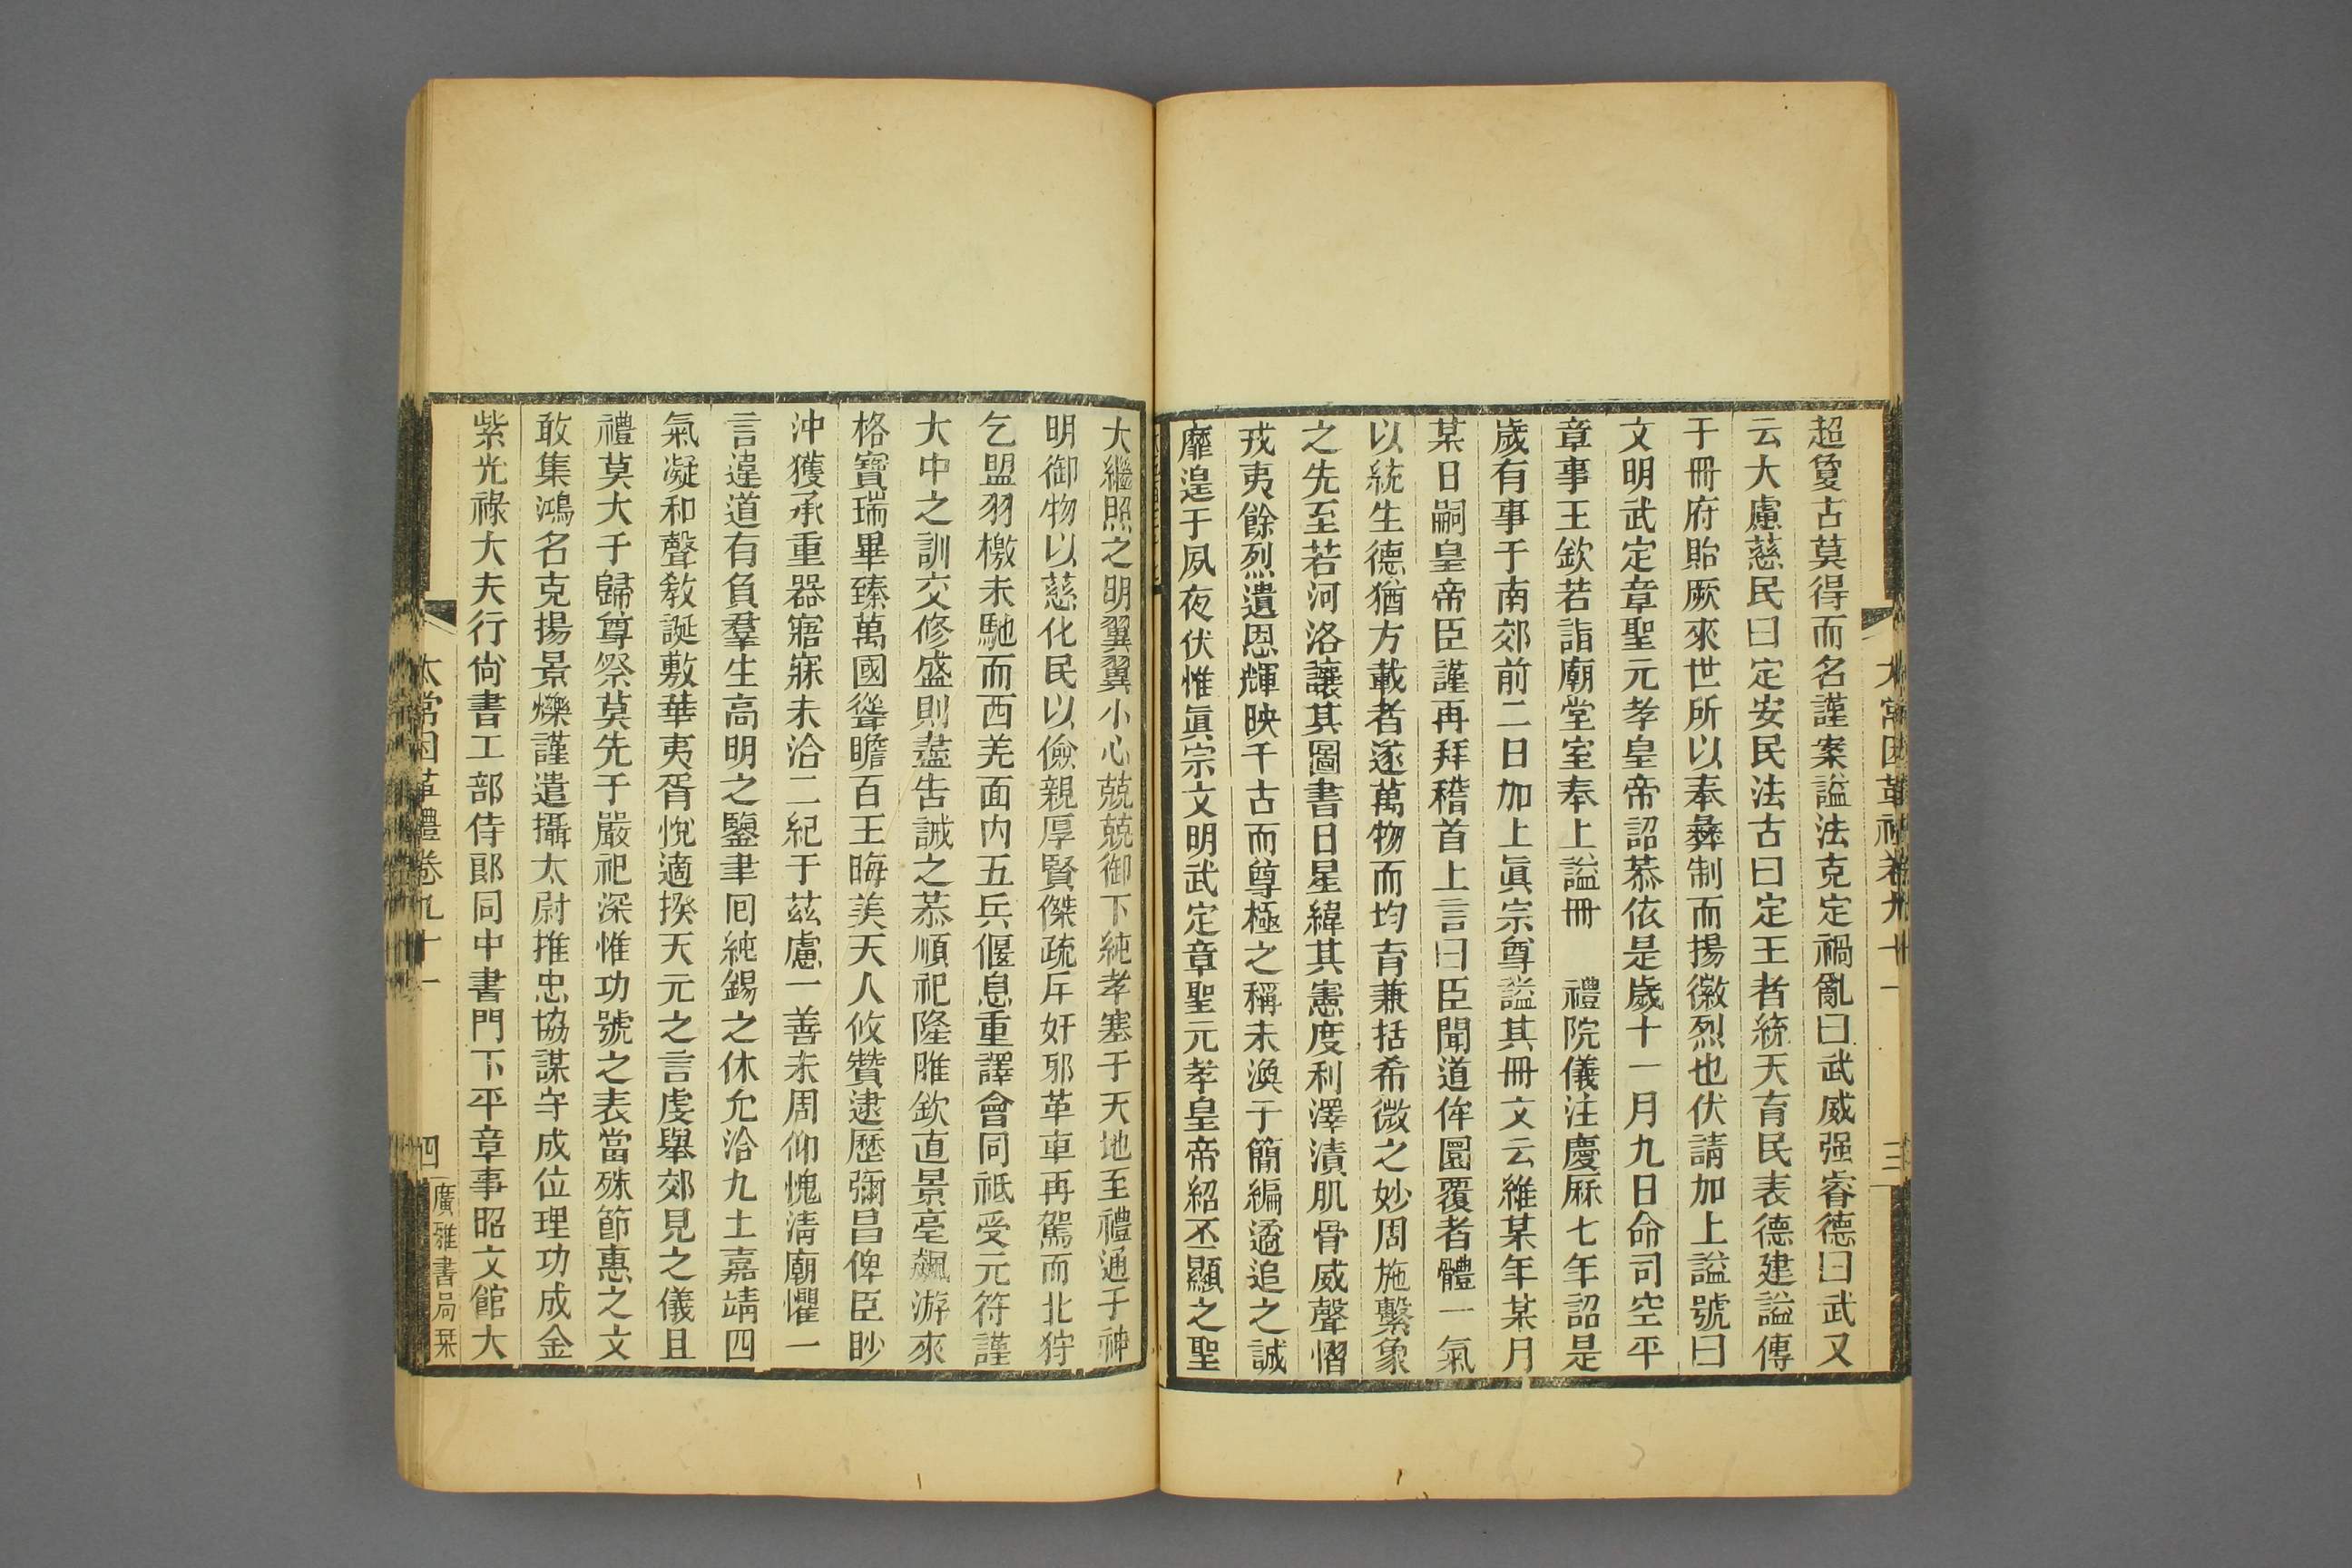 超敻古莫得而名謹案謚法克定禍亂曰武威强睿德曰武又
云大慮慈民曰定安民法古曰定王者統天育民表德建謚傳
于冊府貽厥來世所以奉彝制而揚徽烈也伏請加上謚號曰
文明武定章聖元孝皇帝詔恭依是歲十一月九日命司空平
章事王欽若詣廟堂室奉上謚冊　禮院儀注慶厤七年詔是
歲有事于南郊前二日加上眞宗尊謚其冊文云維某年某月
某日嗣皇帝臣謹再拜稽首上言曰臣聞道侔圜覆者體一氣
以統生德猶方載者遂萬物而均育兼括希微之妙周施繫象
之先至若河洛讓其圖書日星緯其憲度利澤漬肌骨威聲慴
戎夷餘烈遺恩輝映千古而尊極之稱未渙于簡編遹追之誠
靡遑于夙夜伏惟眞宗文明武定章聖元孝皇帝紹丕顯之聖
大繼照之明翼翼小心兢兢御下純孝塞于天地至禮通于神
明御物以慈化民以儉親厚賢傑疏斥奸邪革車再駕而北狩
乞盟羽檄未馳而西羌面內五兵偃息重譯會同祗受元符謹
大中之訓交修盛則藎告誠之恭順祀隆脽欽直景亳飆游來
格寶瑞畢臻萬國聳瞻百王晦美天人攸贊逮歷彌昌俾臣眇
沖獲承重器寤寐未洽二紀于茲慮一善未周仰愧淸廟懼一
言違道有負羣生高明之鑒聿囘純錫之休允洽九土嘉靖四
氣凝和聲敎誕敷華夷胥悅適揆天元之言虔舉郊見之儀且
禮莫大于歸尊祭莫先于嚴祀深惟功號之表當殊節惠之文
敢集鴻名克揚景爍謹遣攝太尉推忠協謀守成位理功成金
紫光祿大夫行尙書工部侍郎同中書門下平章事昭文館大
太常因革禮卷九十一　四
廣雅書局栞